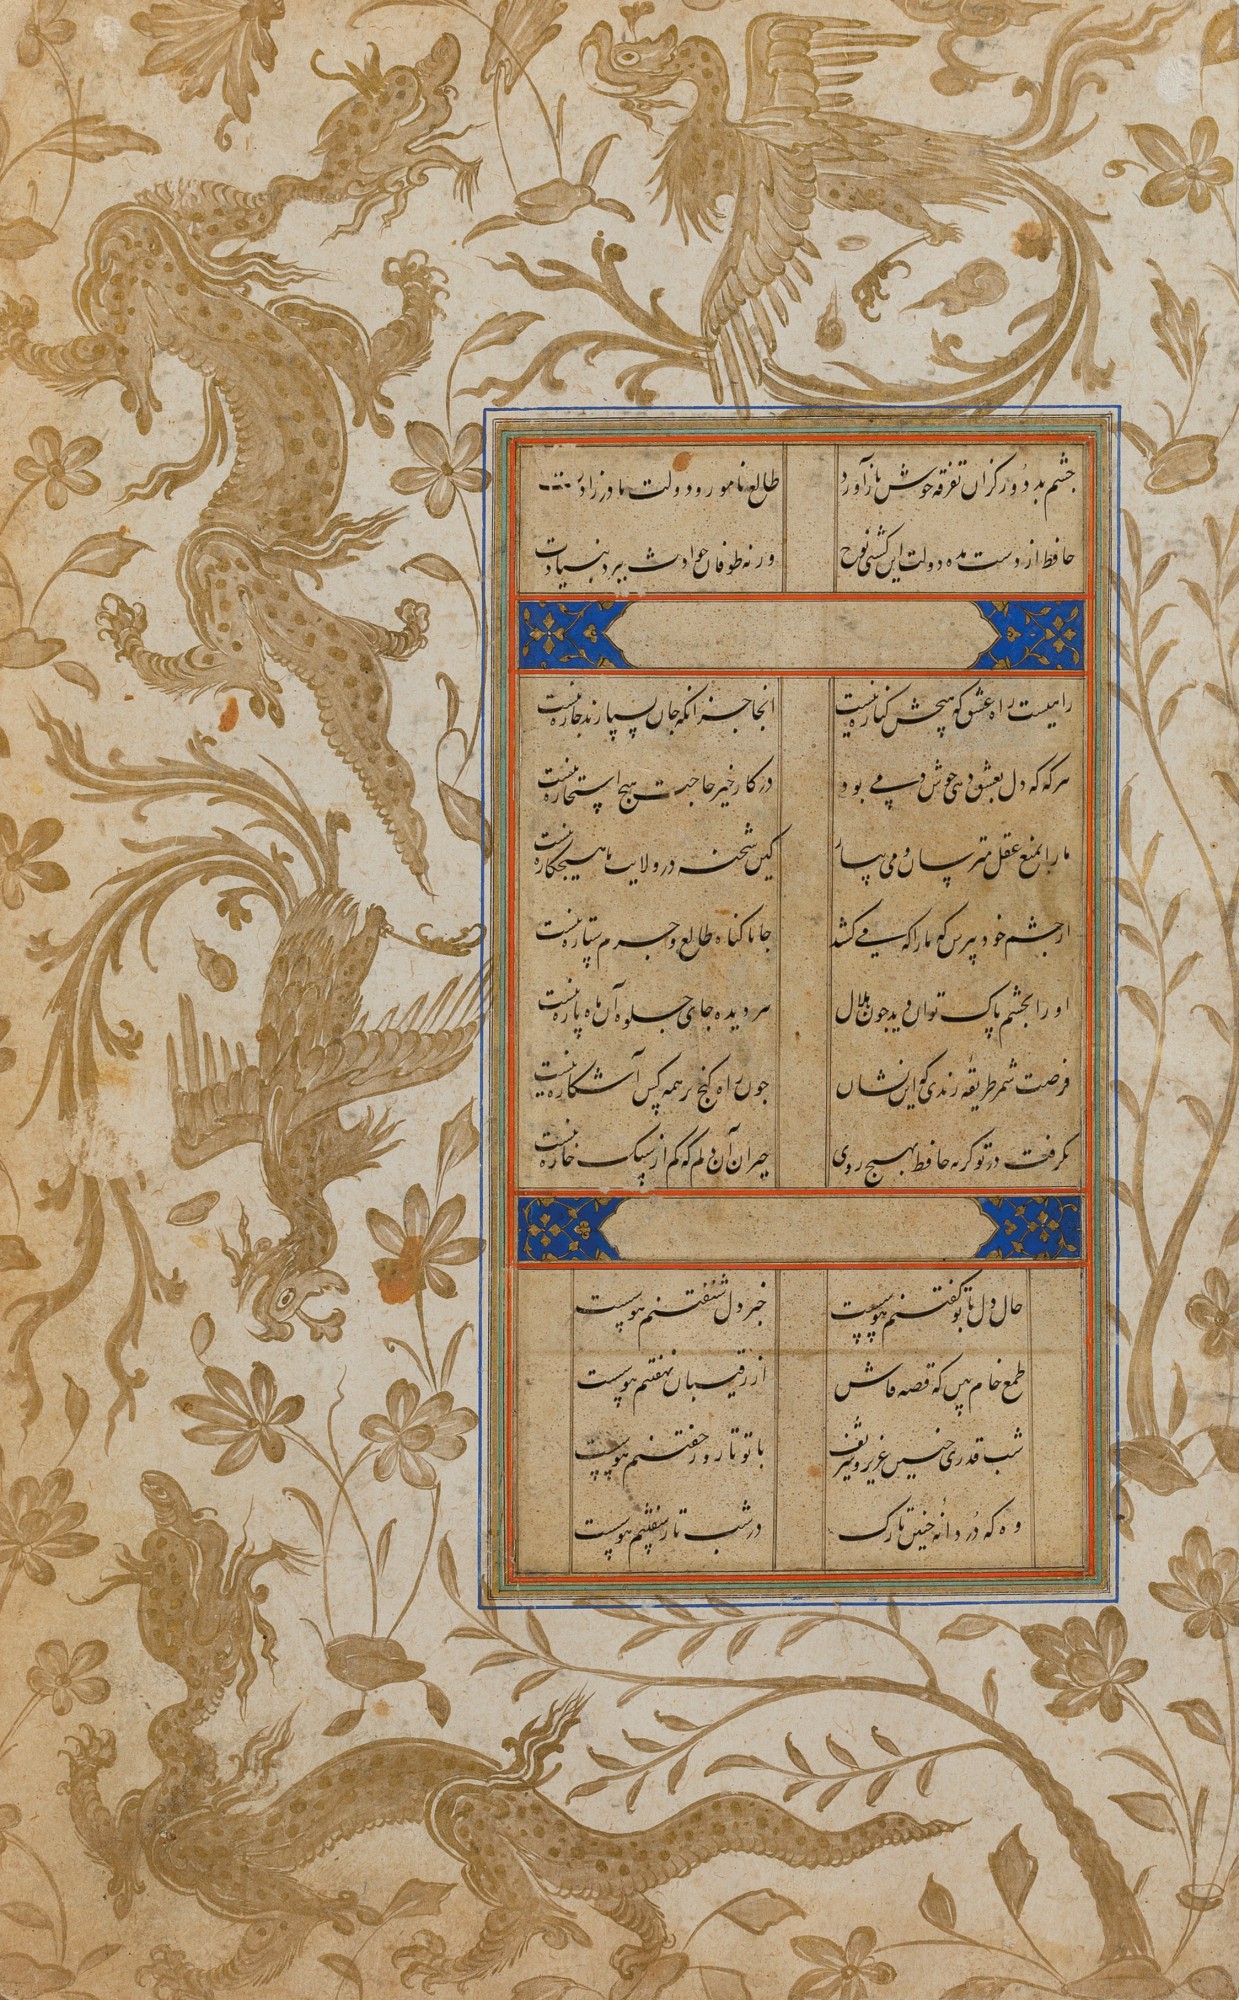 چشم بد دور کزان تفرقه خوش بازآورد طالع نامور و دولت مادرزادت
حافظ از دست مده دولت این کشتی نوح ورنه طوفان حوادث ببرد بنیادت
راهیست راه عشق که هیچش کناره نیست انجا جز انکه جان بسپارند چاره نیست
هر که که دل بعشق دهی خوش دمی بود در کار خیر حاجت هیچ استخاره نیست
ما را بمنع عقل مترسان و می بیار کین شحنه در ولایت ما هیچکاره نیست
از چشم خود بپرس که ما را که می کشد جانا گناه طالع و جرم ستاره نیست
او را بچشم پاک توان دید چون هلال هر دیده جای جلوه آن ماه پاره نیست
فرصت شمر طریقهٔ رندی که این نشان چون راه گنج بر همه کس آشکاره نیست
نگرفت در تو گریه حافظ بهیچ روی حیران آن دلم که کم از سنگ خاره نیست
حال دل با تو گفتنم هوسست خبر دل شنفتنم هوسست
طمع خام بین که قصه فاش از رقیبان نهفتنم هوسست
شب قدری چنین عزیز و شریف با تو تا روز خفتنم هوسست
وه که دُردانهٔ چنین نازک در شب تار سفتنم هوسست